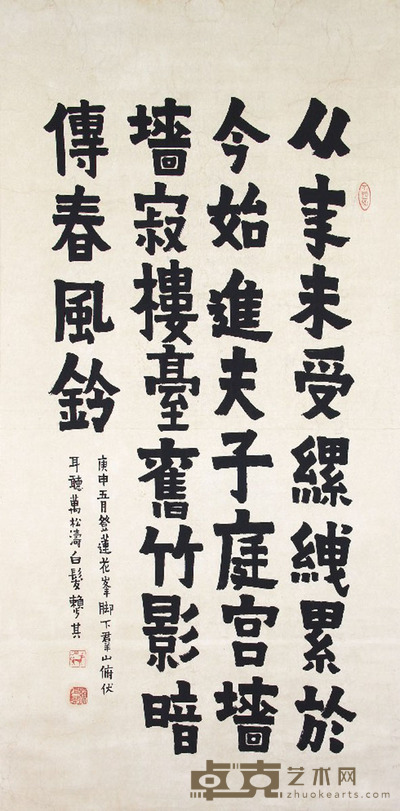 从未受縲絏累於
今始進夫子庭宮墻
墻寂樓臺舊竹影暗
傳春風鈴
庚申五月登蓮花峯脚下羣山俯伏
耳聽萬松濤白髮賴少其
卓克艺术网
www.zhuokearts.com